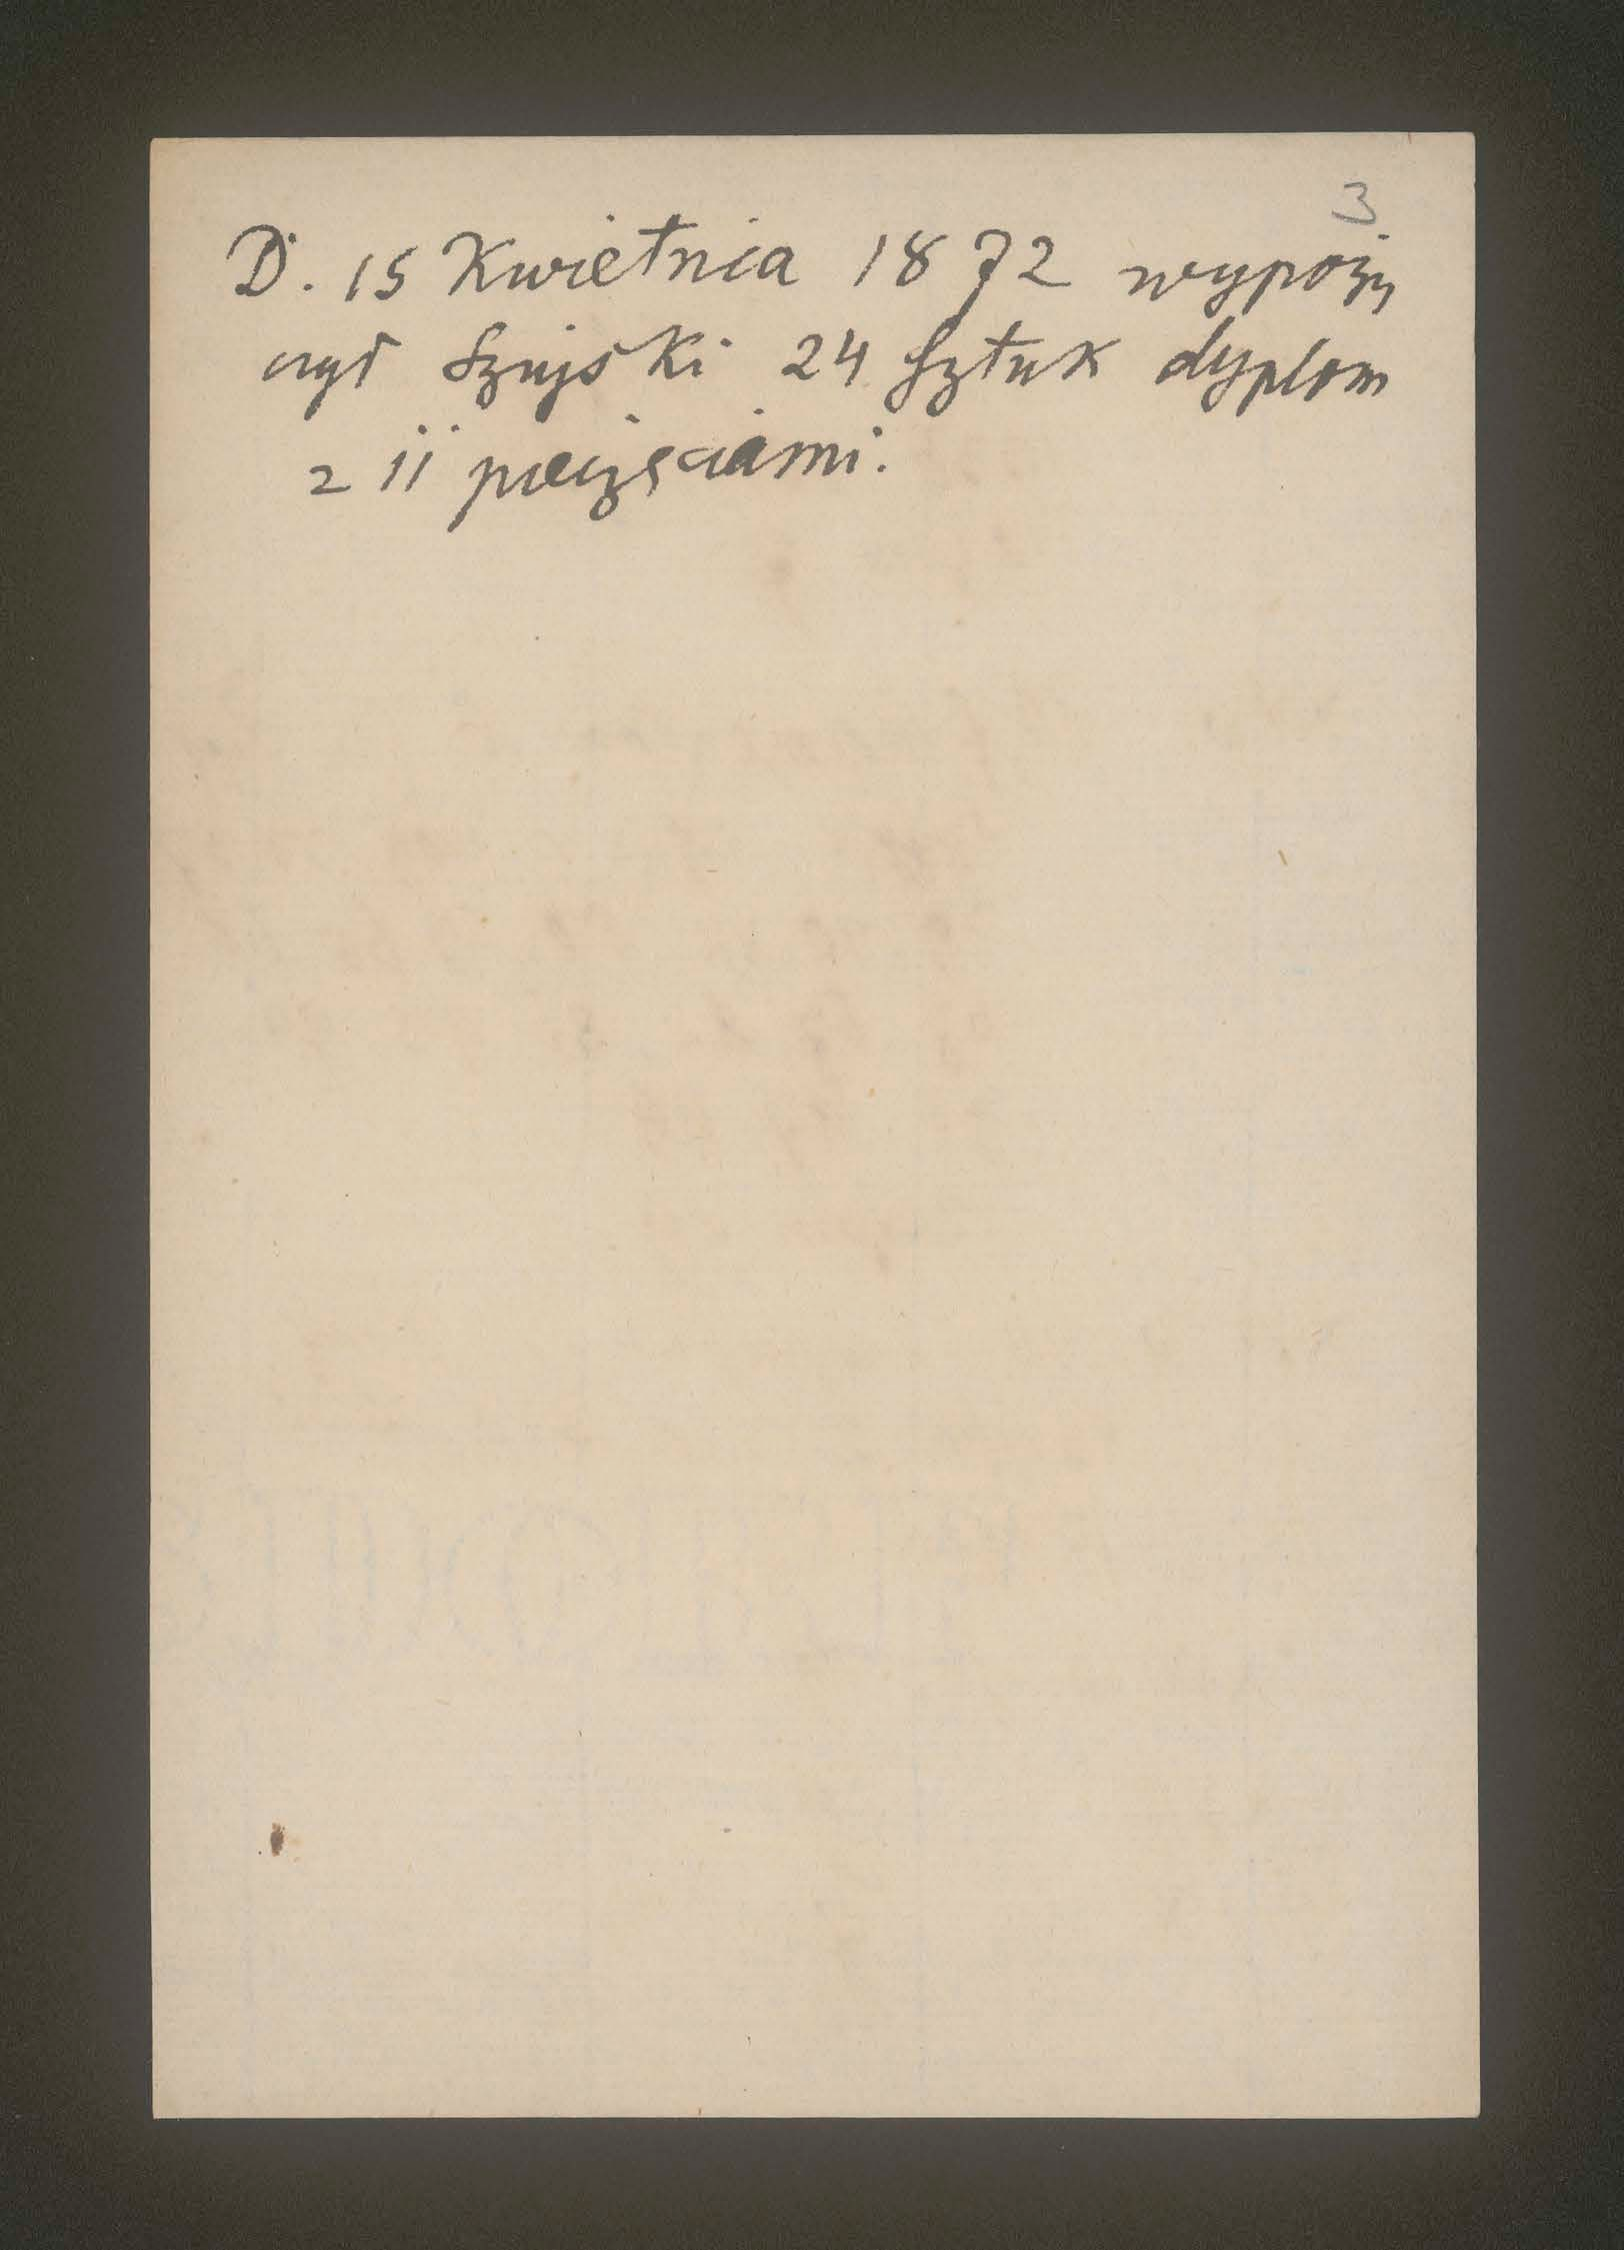 3
D. 15 Kwietnia 1872 wypoży
czył Szujski 24 sztuk dyplom
z 11 pieczęciami.